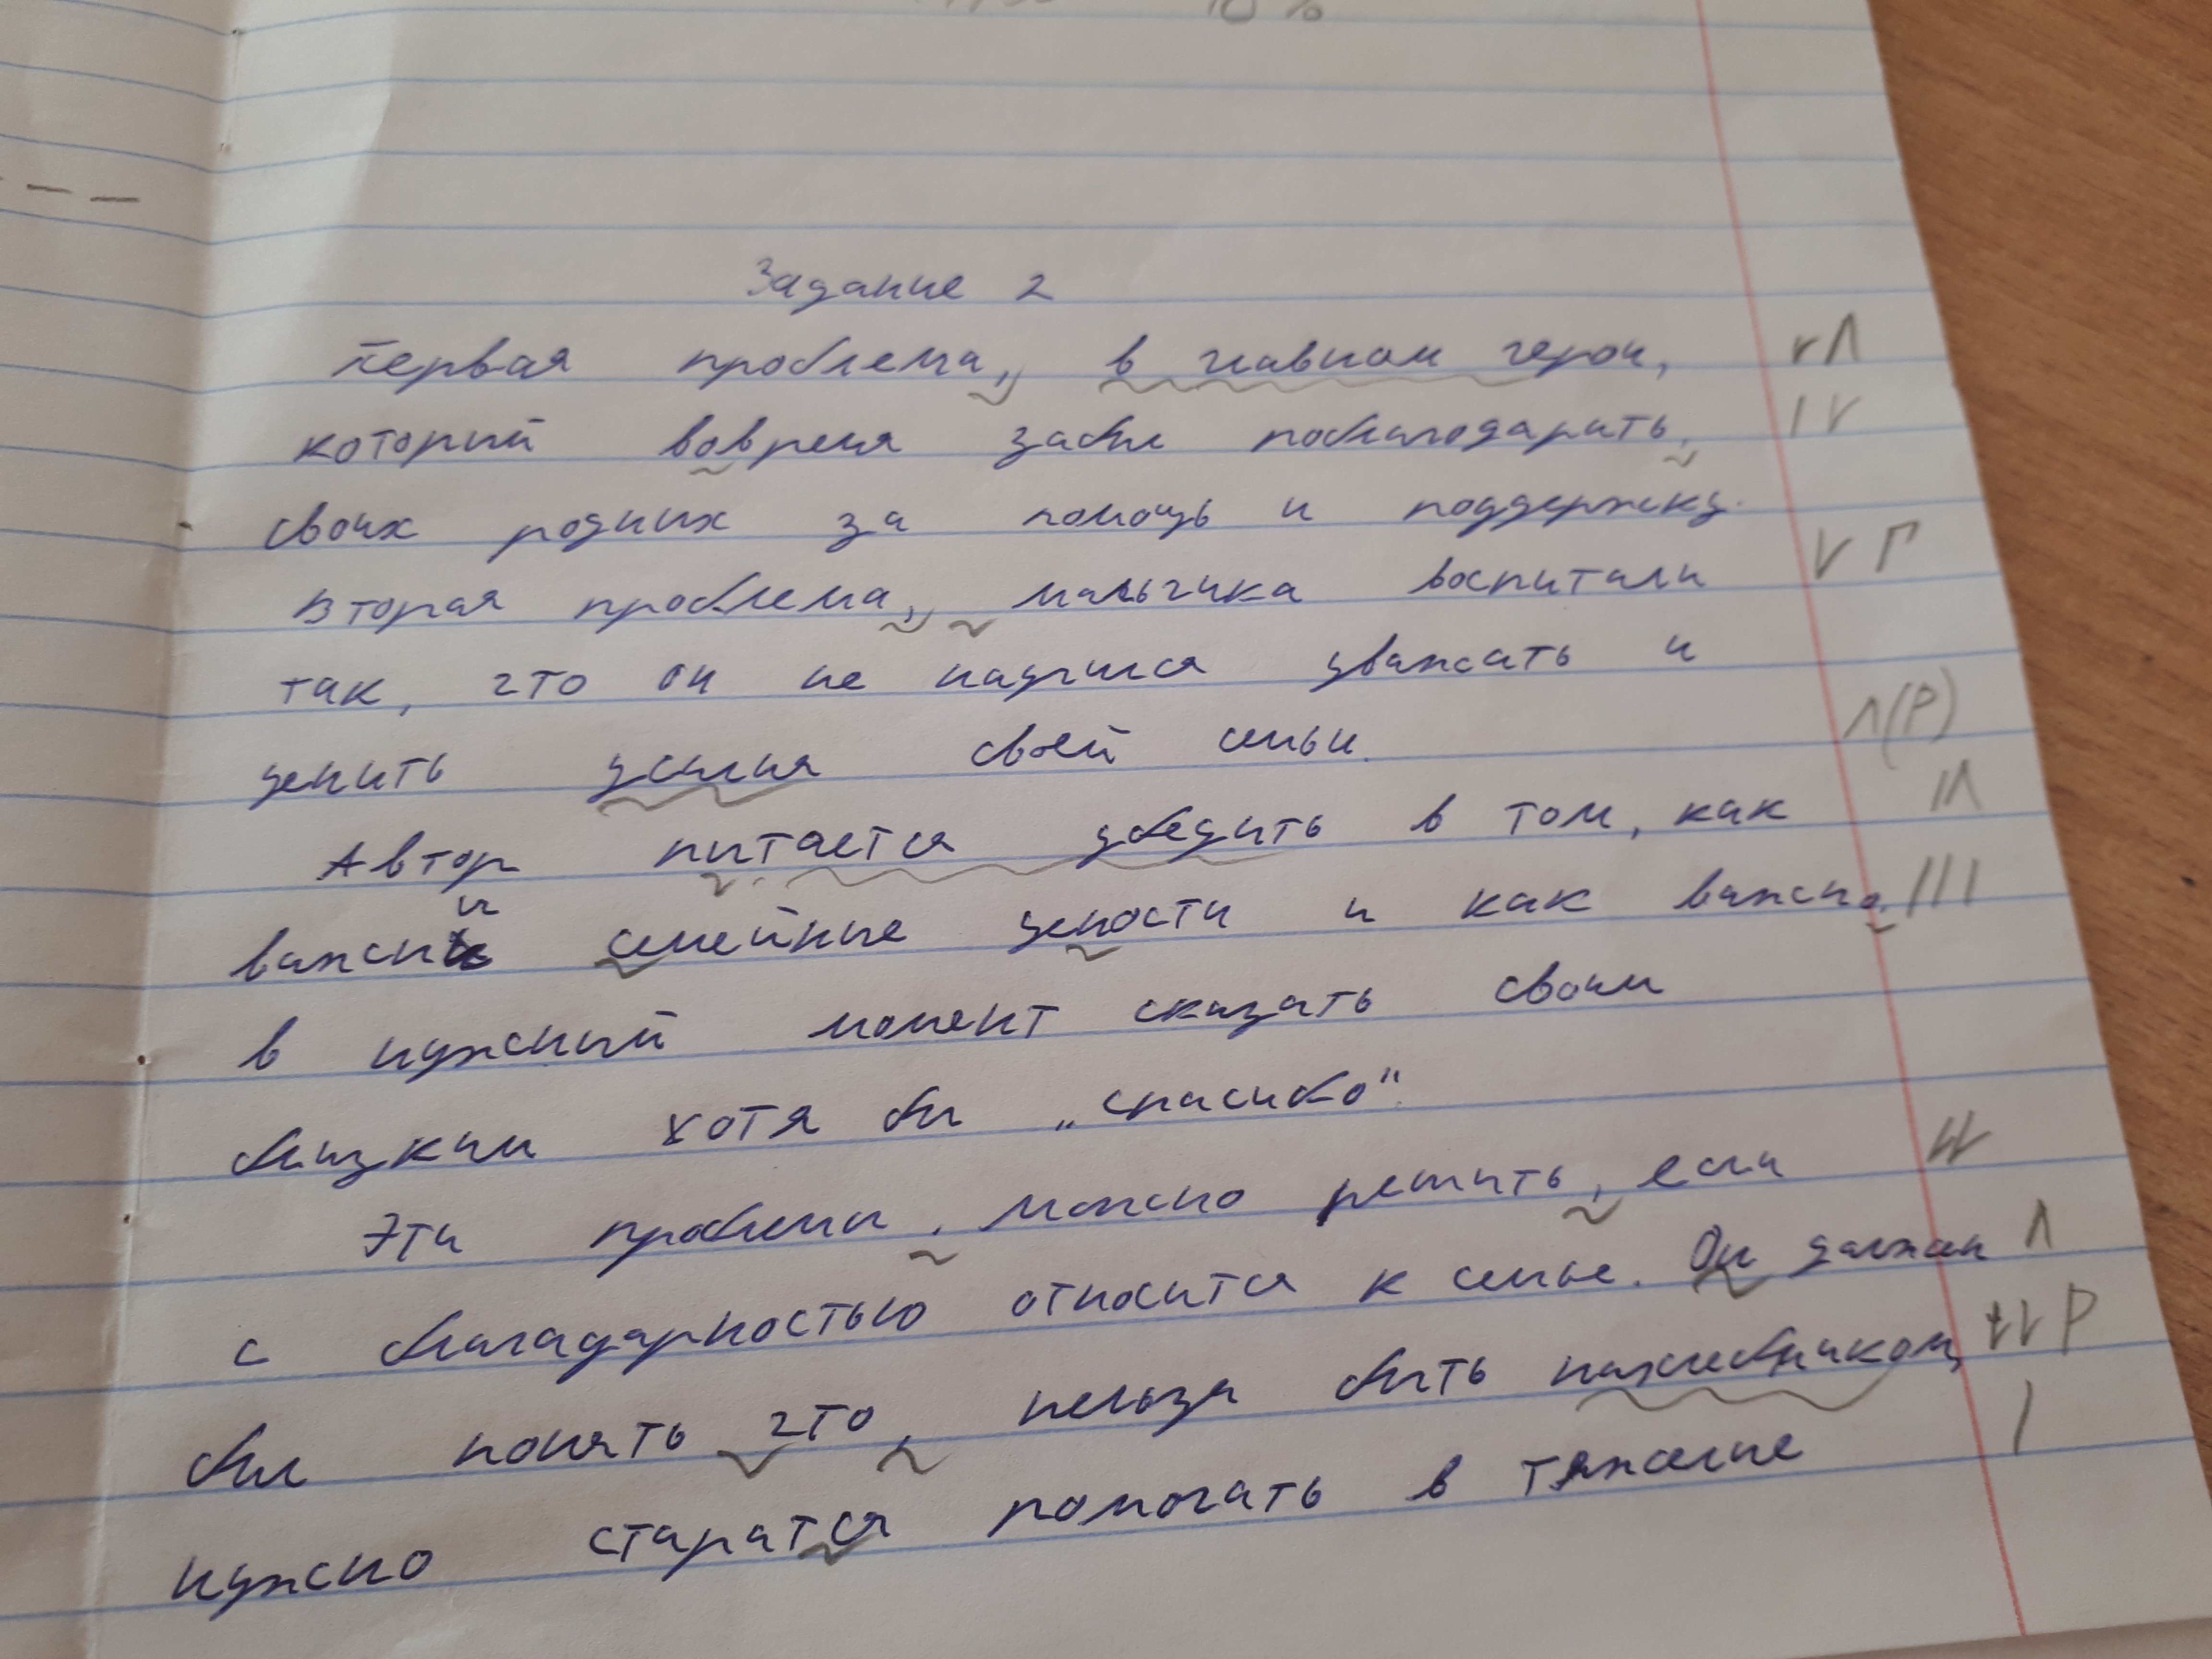 Задание 2
Первая проблема, в главном герои,
который вовремя забыл поблагодарить,
своих родных за помощь и поддержку.
Вторая проблема, мальчика воспитали
так, что он не научился уважать и
ценить усилия своей семьи.
Автор питается убедить в том, как
важны семейные цености и как важно,
в нужный момент сказать своим
близким хотя бы „спасибо“.
Эти проблемы, можно решить, если
с благадарностью относится к семье. Он должен
был понять что, нельзя быть нахлебником,
нужно старатся помогать в тяжелые